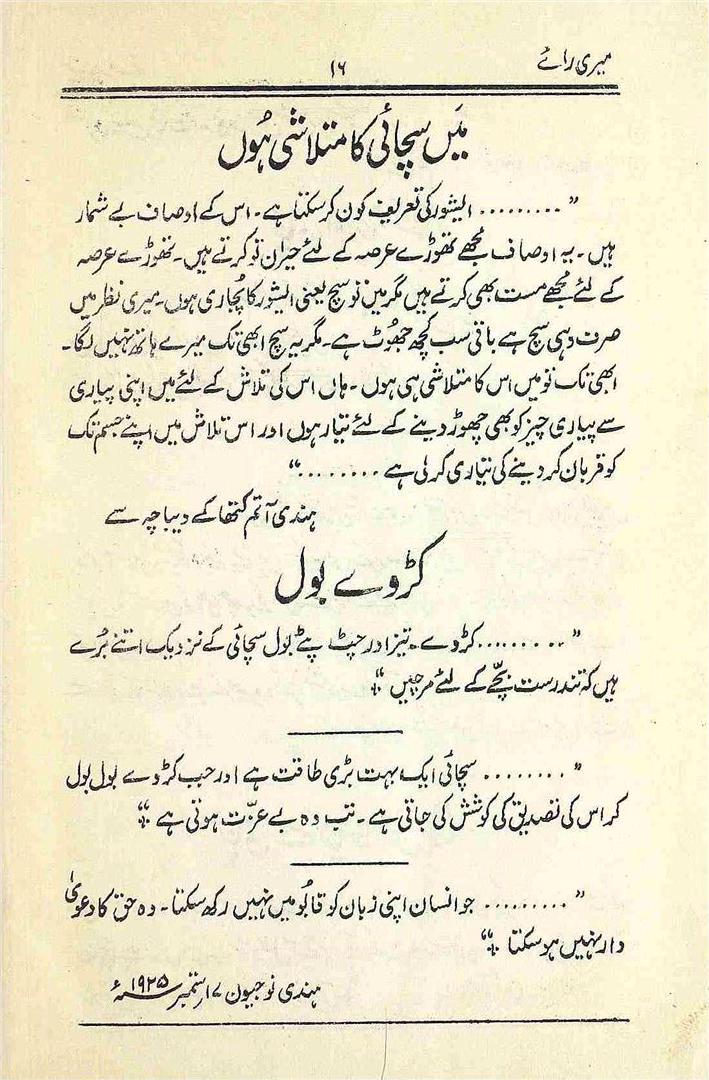 میری رائے
۱۶
میں سچائی کا متلاشی ہُوں
”......... ایشور کی تعریف کون کر سکتا ہے۔ اس کے اوصاف بے شمار
ہیں۔ یہ اوصاف مجھے تھوڑے عرصہ کے لئے حیران تو کرتے ہیں۔ تھوڑے عرصہ
کے لئے مجھے مست بھی کرتے ہیں مگر میں تو سچ یعنی ایشور کا پُجاری ہوں۔ میری نظر میں
صرف وہی سچ ہے باقی سب کچھ جھُوٹ ہے۔ مگر یہ سچ ابھی تک میرے ہاتھ نہیں لگا۔
ابھی تک تو میں اس کا متلاشی ہی ہوں۔ ہاں اس کی تلاش کے لئے میں اپنی پیاری
سے پیاری چیز کو بھی چھوڑ دینے کے لئے تیار ہوں اور اس تلاش میں اپنے جسم تک
کو قربان کر دینے کی تیاری کر لی ہے ........“
ہندی آتم کتھا کے دیباچہ سے
کڑوے بول
”......... کڑوے۔ تیز اور چٹ پٹے بول سچائی کے نزدیک اتنے بُرے
ہیں کہ تندرست بچّے کے لئے مرچیں“
”........ سچائی ایک بہت بڑی طاقت ہے اور جب کڑوے بول بول
کر اس کی تصدیق کی کوشش کی جاتی ہے۔ تب وہ بے عزّت ہوتی ہے“
”......... جو انسان اپنی زبان کو قابُو میں نہیں رکھ سکتا۔ وہ حق کا دعویٰ
دار نہیں ہو سکتا“
ہندی نوجیون ۱۷ ستمبر ۱۹۲۵ء